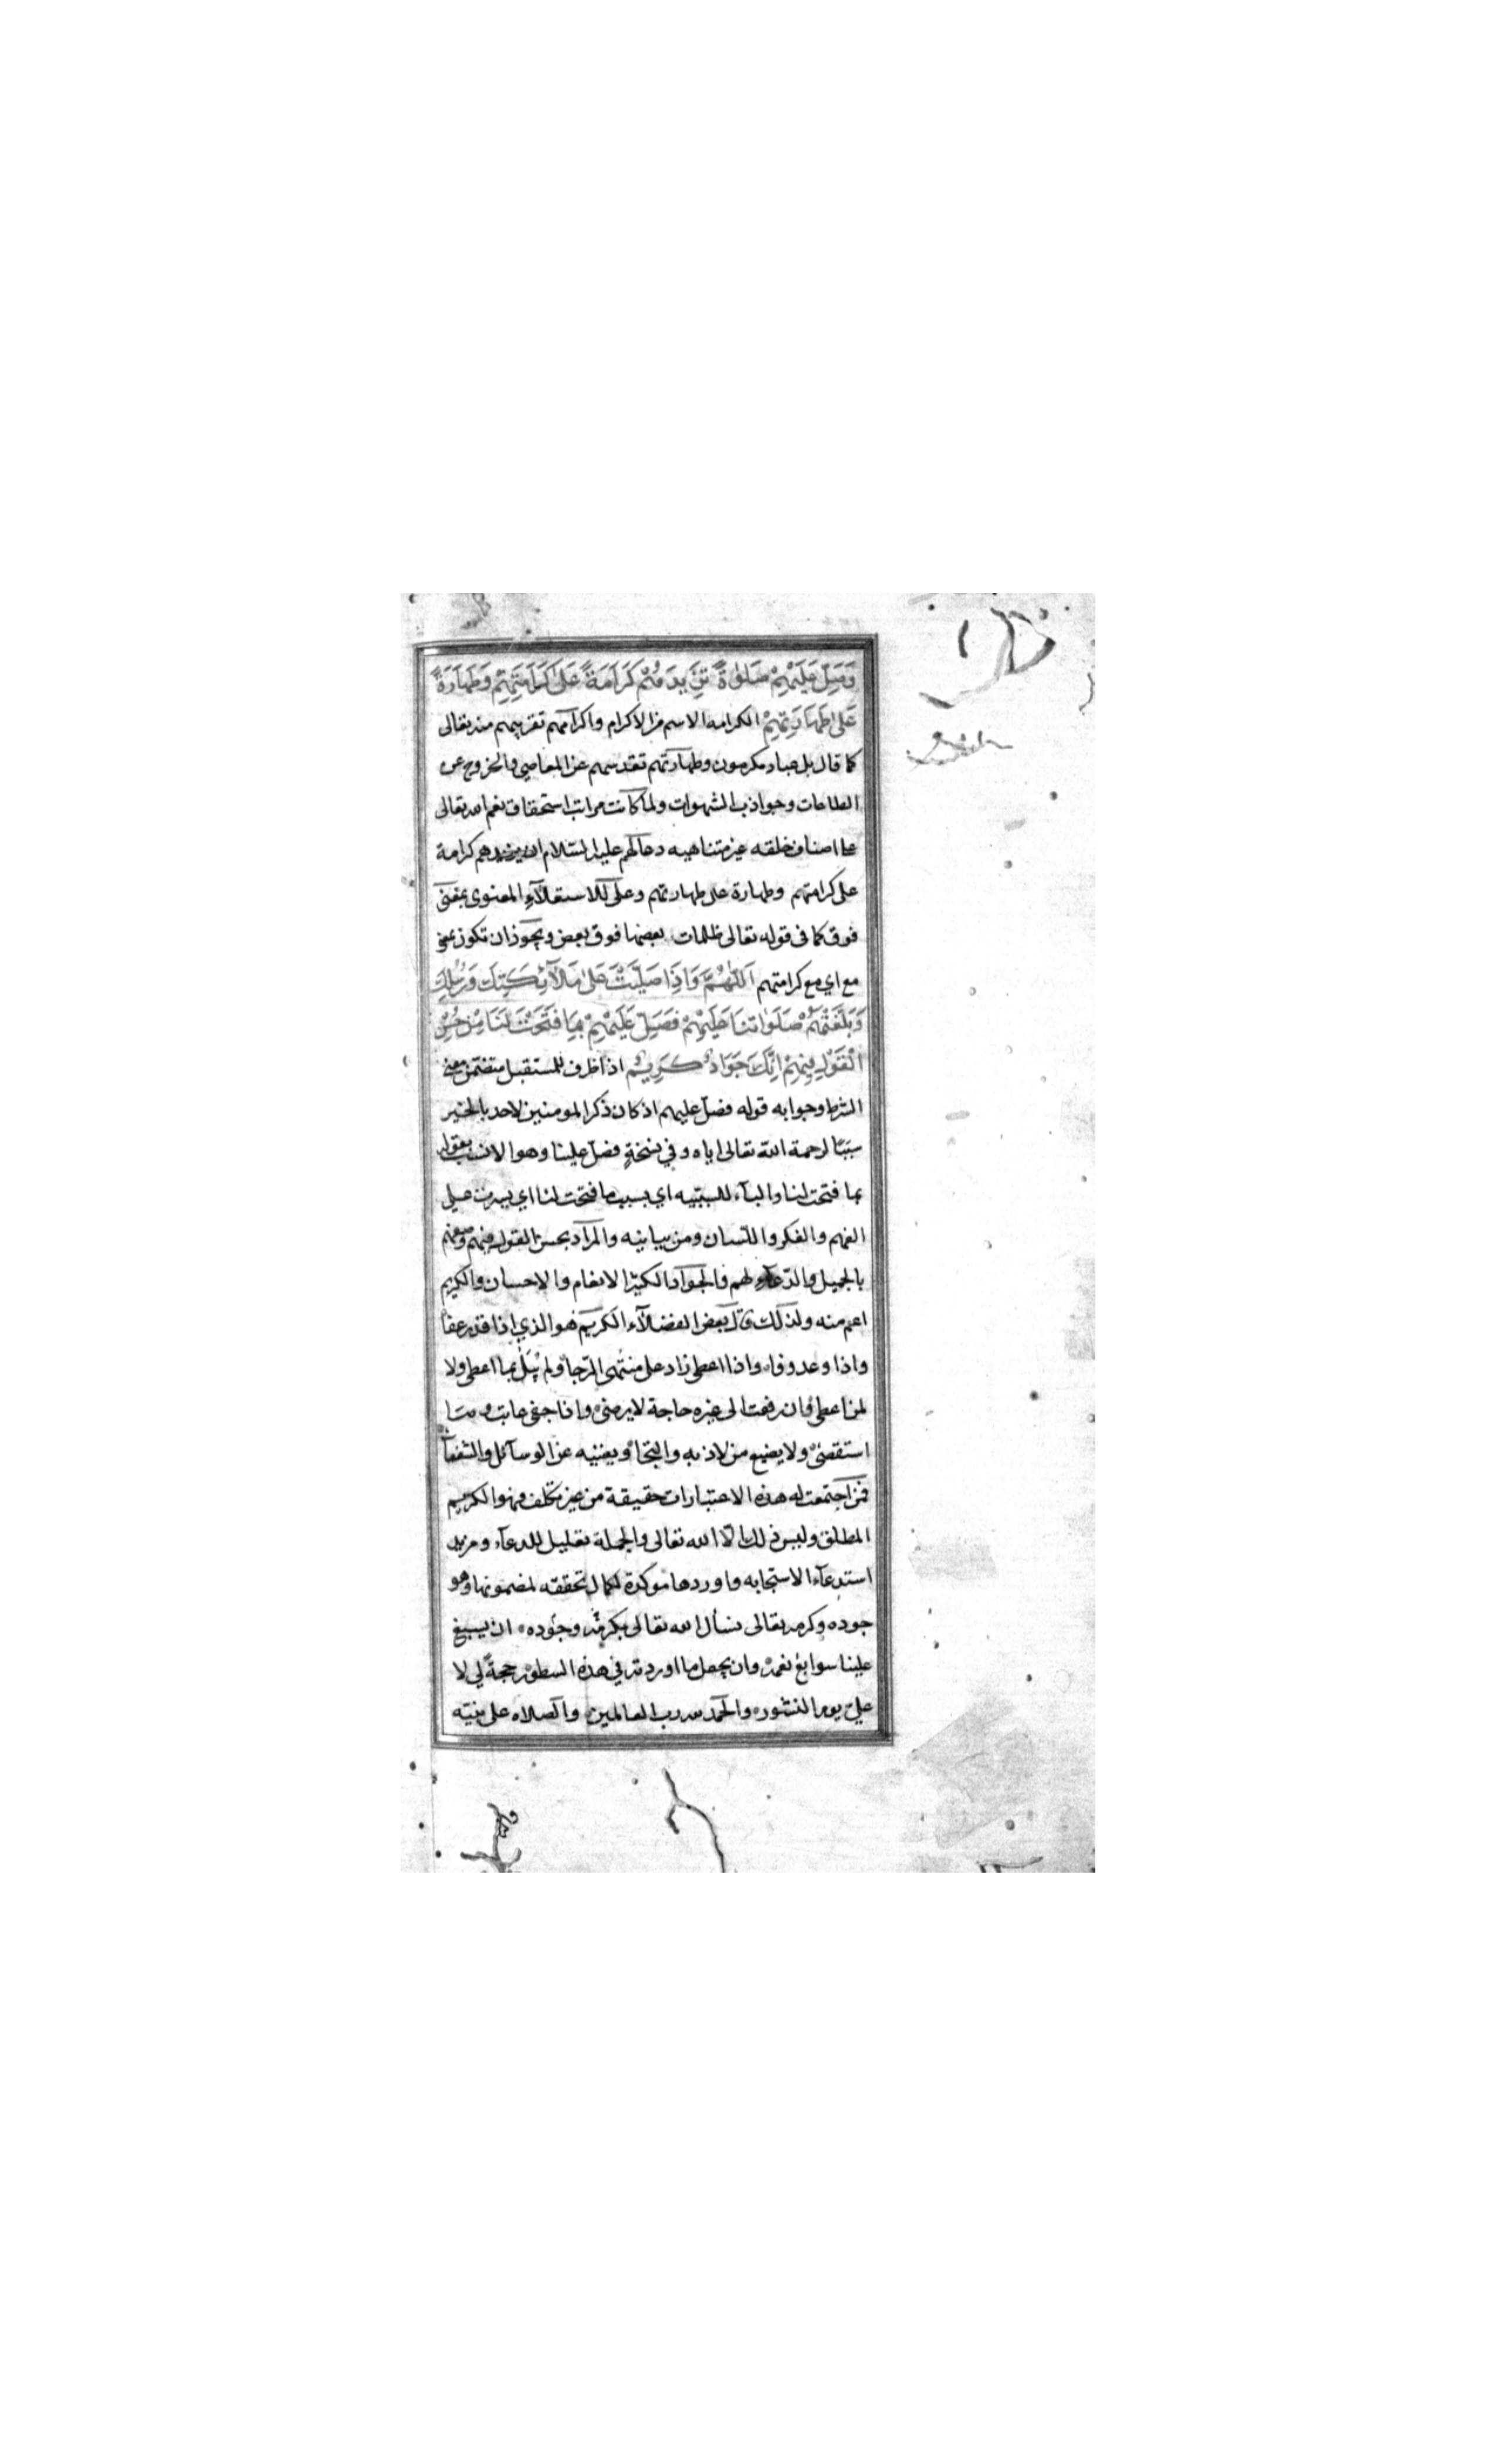 وَصَلِّ عَلَيْهِمْ صَلٰوةً تَزِيدُهُمْ كَرَامَةً عَلٰى كَرَامَتِهِمْ وَطَهَارَةً
عَلٰى طَهَارَتِهِمْ الكرامه الاسم من الاكرام واكرامهم تقريبهم منه تعالى
كما قال بل عباد مكرمون وطهارتهم تقدسهم عن المعاصي والخروج عن
الطاعات وجواذب الشهوات ولما كانت مراتب استحقاق نعم الله تعالى
على اصناف خلقه غير متناهيه دعا لهم عليه السّلام ان يزيدهم كرامة
على كرامتهم وطهارة على طهارتهم وعلى للاستعلآء المعنوى بمعنى
فوق كما فى قوله تعالى ظلمات بعضها فوق بعض ويجوز ان تكون بمعنى
مع اي مع كرامتهم اَللّٰهُمَّ وَاِذَا صَلَّيْتَ عَلٰى مَلَآئِكَتِكَ وَرُسُلِكَ
وَبَلَّغْتَهُمْ صَلَوَاتِنَا عَلَيْهِمْ فَصَلِّ عَلَيْهِمْ بِمَا فَتَحْتَ لَنَا مِنْ حُسْنِ
الْقَوْلِ فِيهِمْ اِنَّكَ جَوَادٌ كَرِيمٌ اذا ظرف للمستقبل متضمن معنى
الشرط وجوابه قوله فصل عليهم اذ كان ذكر المومنين لاحد بالخير
سببًا لرحمة الله تعالى اياه وفي نسخةٍ فصل علينا وهو الانسب بقوله
بما فتحت لنا والبآء للسببيه اي بسبب ما فتحت لنا اي يسرت على
الفهم والفكر واللسان ومن بيانيه والمراد بحسن القول فيهم وصفهم
بالجميل والدّعآء لهم فالجواد الكثير الانعام والاحسان والكريم
اعم منه ولذلك قال بعض الفضلآء الكريم هو الذي اذا قدر عفا
واذا وعد وفا واذا اعطى زاد على منتهى الرّجا ولم يبل بما اعطى ولا
لمن اعطى وان رفعت الى غيره حاجة لا يرضى واذا جفى عاتب وما
استقصى ولا يضيع من لاذ به والتجا ويغنيه عن الوسآئل والشفعآء
فمن اجتمعت له هذه الاعتبارات حقيقة من غير تكلف فهو الكريم
المطلق وليس ذلك الّا الله تعالى والجملة تعليل للدعآء ومزيد
استدعآء الاستجابه واوردها موكدة لكمال تحققه لمضمونها وهو
جوده وكرمه تعالى نسأل الله تعالى بكرمه وجوده ان يسبغ
علينا سوابغ نعمه وان يجعل ما اوردته في هذه السطور حجةً لي لا
عليّ يوم النشور والحمد لله رب العالمين والصلاه على نبيّه